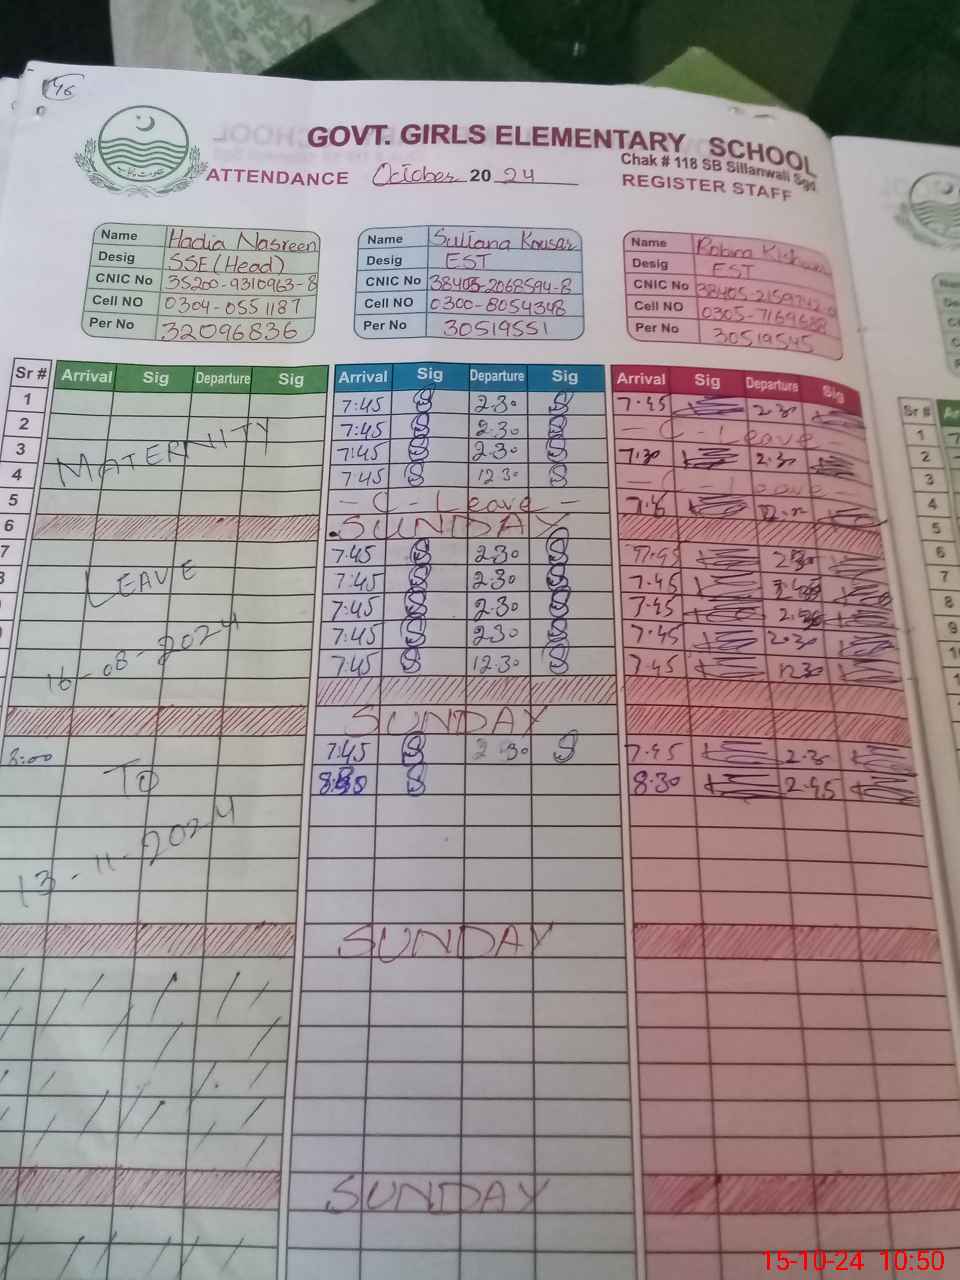 46
GOVT. GIRLS ELEMENTARY SCHOOL
Chak # 118 SB Sillanwali Sgd
ATTENDANCE October 2024 REGISTER STAFF
Name Hadia Nasreen
Desig SSE (Head)
CNIC No 35200-9310963-8
Cell NO 0304-0551187
Per No 32096836
Name Sultana Kousar
Desig EST
CNIC No 38405-2068594-8
Cell NO 0300-6054348
Per No 30519551
Name Robina
Desig EST
CNIC No
Cell NO 0305-7169688
Per No 30519545
Sr # Arrival Sig Departure Sig Arrival Sig Departure Sig Arrival Sig Departure Sig
1 7:45 2.30 7.45 2.30
2 7:45 2.30 - C - Leave
3 7:45 2.30 7.30 2.30
4 7:45 12 30 - C - Leave -
5 - C - Leave -
6 SUNDAY
7 7:45 2.30 7.45
7:45 2.30 7.45
7:45 2.30 7.45
7:45 2.30 7.45 2.30
7:45 12.30 7.45 12.30
MATERNITY
LEAVE
16-08-2024
TO
13-11-2024
SUNDAY
8:00 7:45 2.30 7.45 2.30
8:30 2.45
SUNDAY
SUNDAY
Sr #
1
2
3
4
5
6
7
8
9
15-10-24 10:50